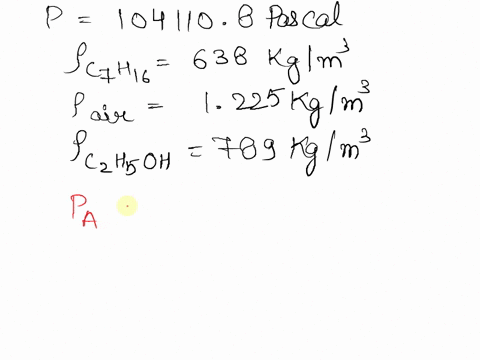 P = 104110.8 Pascal
ρC₇H₁₆ = 638 Kg/m³
ρair = 1.225 Kg/m³
ρC₂H₅OH = 789 Kg/m³
P_A